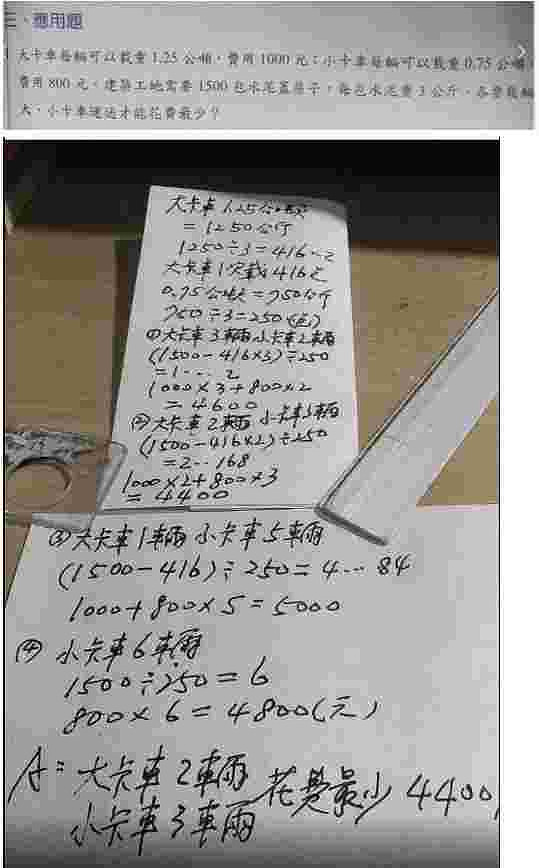 三、應用題
大卡車每輛可以載重 1.25 公噸，費用 1000 元；小卡車每輛可以載重 0.75 公噸，
費用 800 元。建築工地需要 1500 包水泥蓋房子，每包水泥重 3 公斤，各要幾輛
大、小卡車運送才能花費最少？
大卡車 1.25公噸
=1250公斤
1250÷3=416…2
大卡車1次載416包
0.75公噸=750公斤
750÷3=250(包)
①大卡車3輛小卡車2輛
(1500-416×3)÷250
=1…2
1000×3+800×2
=4600
②大卡車2輛 小卡車3輛
(1500-416×2)÷250
=2…168
1000×2+800×3
=4400
③大卡車1輛 小卡車5輛
(1500-416)÷250=4…84
1000+800×5=5000
④ 小卡車6輛
1500÷250=6
800×6=4800(元)
A: 大卡車2輛
小卡車3輛 花費最少 4400